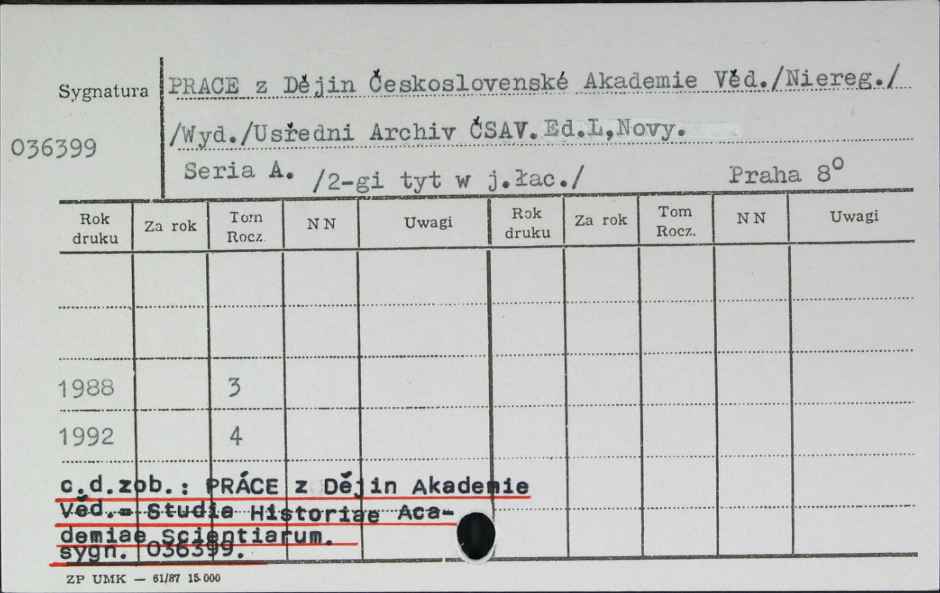 Sygnatura PRACE z Dějin Československé Akademie Věd./Niereg./
/Wyd./Usředni Archiv ČSAV.Ed.L,Novy.
036399
Seria A. /2-gi tyt w j.łac./ Praha 8°
Rok druku Za rok Tom Rocz. N N Uwagi Rok druku Za rok Tom Rocz. N N Uwagi
1988 3
1992 4
c.d.zob.: PRÁCE z Dějin Akademie
Věd.= Studia Historiae Aca-
demiae Scientiarum.
sygn. 036399.
ZP UMK — 61/87 15.000